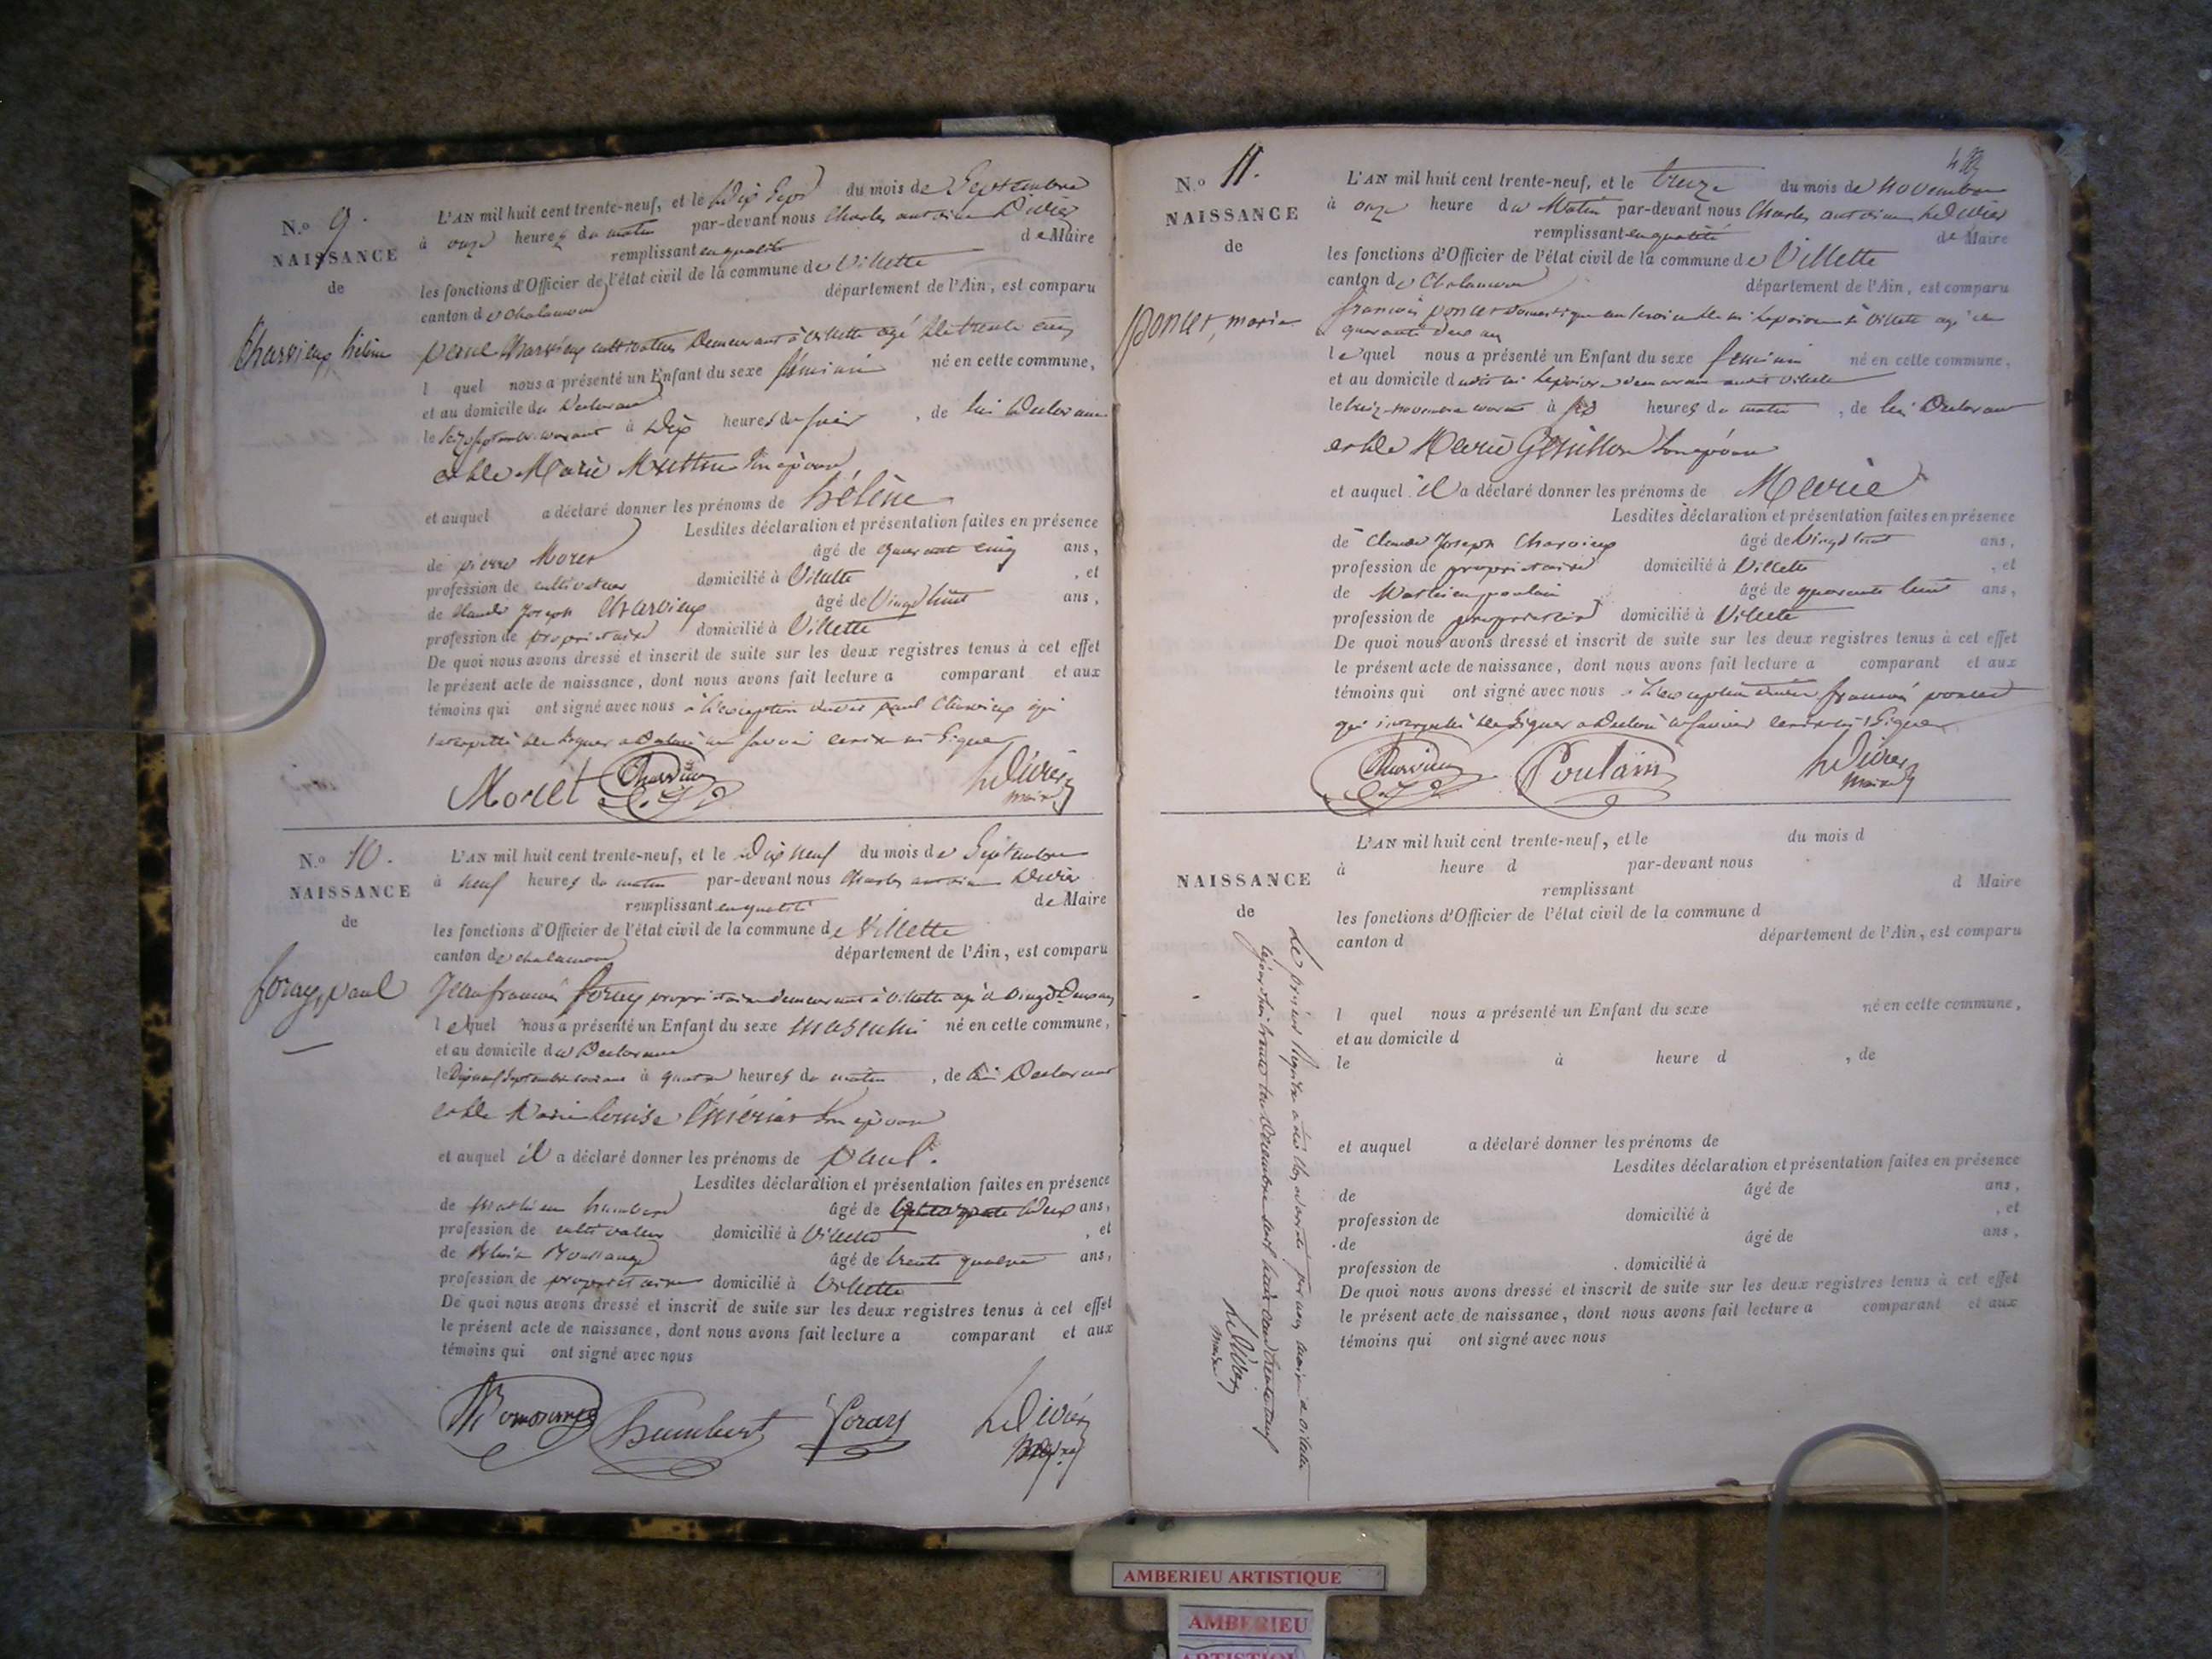 N.o 9.
NAISSANCE
de
Charvieux, hélène
L'AN mil huit cent trente-neuf, et le Dix Sept du mois de Septembre
à onze heures du matin par-devant nous Charles antoine Livier
remplissant en qualité de Maire
les fonctions d'Officier de l'état civil de la commune de Villette
canton de chalamont département de l'Ain, est comparu
paul Charvieux cultivateur Demeurant à Villette agé de trente cinq
l quel nous a présenté un Enfant du sexe féminin né en cette commune,
et au domicile du Déclarant
le Seize septembre courant à Dix heures du soir, de lui Déclarant
et de Marie son épouse
et auquel a déclaré donner les prénoms de hélène
Lesdites déclaration et présentation faites en présence
de pierre Moret âgé de quarante cinq ans,
profession de cultivateur domicilié à Villette, et
de claude Joseph Charvieux âgé de Vingt huit ans,
profession de propriétaire domicilié à Villette
De quoi nous avons dressé et inscrit de suite sur les deux registres tenus à cet effet
le présent acte de naissance, dont nous avons fait lecture a comparant et aux
témoins qui ont signé avec nous à l'exception dudit paul Charvieux qui
interpellé de signer a Déclaré ne savoir signer
Moret Charvieux maire
N.o 10.
NAISSANCE
de
foray, paul
L'AN mil huit cent trente-neuf, et le Dix neuf du mois de Septembre
à neuf heures du matin par-devant nous Charles antoine Livier
remplissant en qualité de Maire
les fonctions d'Officier de l'état civil de la commune de Villette
canton de chalamont département de l'Ain, est comparu
Jean françois foray propriétaire demeurant à Villette agé de Vingt Deux ans
lequel nous a présenté un Enfant du sexe masculin né en cette commune,
et au domicile du Déclarant
le Dix neuf Septembre courant à quatre heures du matin, de lui Déclarant
et de Marie louise son épouse
et auquel il a déclaré donner les prénoms de paul.
Lesdites déclaration et présentation faites en présence
de Mathieu humbert âgé de Deux ans,
profession de cultivateur domicilié à Villette, et
de âgé de trente quatre ans,
profession de propriétaire domicilié à Villette
De quoi nous avons dressé et inscrit de suite sur les deux registres tenus à cet effet
le présent acte de naissance, dont nous avons fait lecture a comparant et aux
témoins qui ont signé avec nous
humbert foray maire
N.o 11.
NAISSANCE
de
poncet, marie
L'AN mil huit cent trente-neuf, et le treize du mois de novembre
à onze heure du Matin par-devant nous Charles antoine
remplissant en qualité de Maire
les fonctions d'Officier de l'état civil de la commune de Villette
canton de Chalamont département de l'Ain, est comparu
françois poncet Domestique au service de à Villette agé de
quarante deux ans
lequel nous a présenté un Enfant du sexe féminin né en cette commune,
et au domicile dudit demeurant audit Villette
le treize novembre courant à six heures du matin, de lui Déclarant
et de Marie son épouse
et auquel il a déclaré donner les prénoms de Marie
Lesdites déclaration et présentation faites en présence
de Claude Joseph Charvieux âgé de Vingt huit ans,
profession de propriétaire domicilié à Villette, et
de Mathieu poulain âgé de quarante huit ans,
profession de propriétaire domicilié à Villette
De quoi nous avons dressé et inscrit de suite sur les deux registres tenus à cet effet
le présent acte de naissance, dont nous avons fait lecture a comparant et aux
témoins qui ont signé avec nous à l'exception dudit françois poncet
qui interpellé de signer a Déclaré ne savoir signer
Charvieux Poulain maire
NAISSANCE
de
L'AN mil huit cent trente-neuf, et le du mois d
à heure d par-devant nous
remplissant d Maire
les fonctions d'Officier de l'état civil de la commune d
canton d département de l'Ain, est comparu
l quel nous a présenté un Enfant du sexe né en cette commune,
et au domicile d
le à heure d , de
et auquel a déclaré donner les prénoms de
Lesdites déclaration et présentation faites en présence
de âgé de ans,
profession de domicilié à , et
de âgé de ans,
profession de domicilié à
De quoi nous avons dressé et inscrit de suite sur les deux registres tenus à cet effet
le présent acte de naissance, dont nous avons fait lecture a comparant et aux
témoins qui ont signé avec nous
Le présent Registre a été clos et arrêté par nous maire de Villette
aujourd'hui trente un Décembre mil huit cent trente neuf
maire
AMBERIEU ARTISTIQUE
AMBERIEU
ARTISTIQU